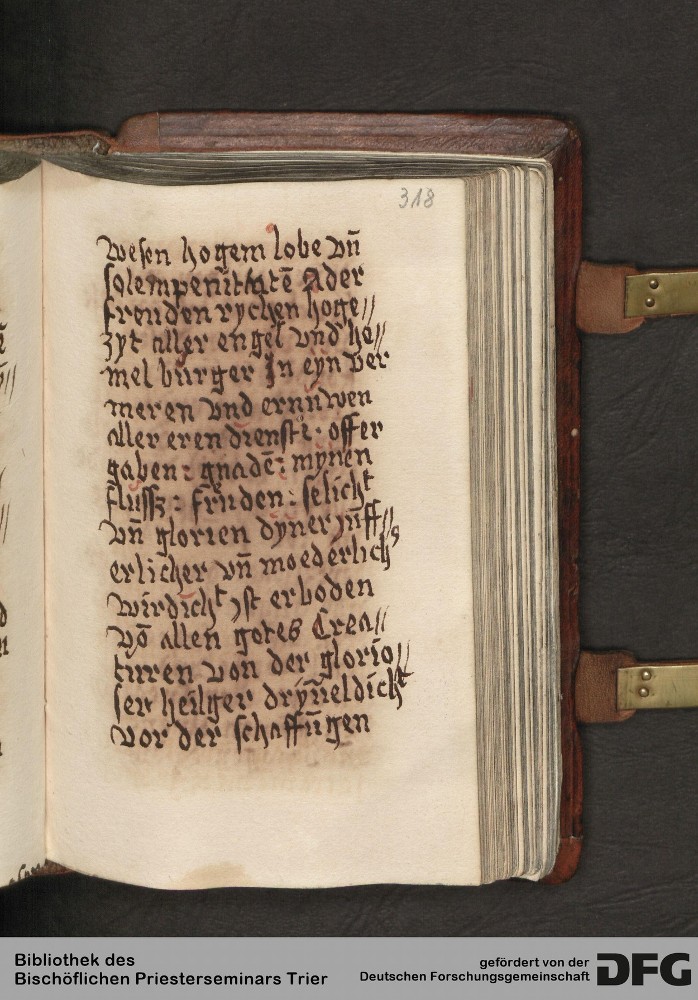 318
wesen hogem lobe vn̄
solempenithatē Ader
freuden rychen hoge//
zyt aller engel vnd he//
mel burger In eyn ver
meren vnd ernuwen
aller eren dienste : offer
gaben : gnadē : mynen
flussz : fruden : selicht
vn̄ glorien dyner Juff//
erlicher vn̄ moederlichs
wirdicht yst erboden
vō allen gotes Crea//
turen von der glorio//
ser heilger dryueldicht
vor der schaffūgen
Bibliothek des
Bischöflichen Priesterseminars Trier
gefördert von der
Deutschen Forschungsgemeinschaft
DFG